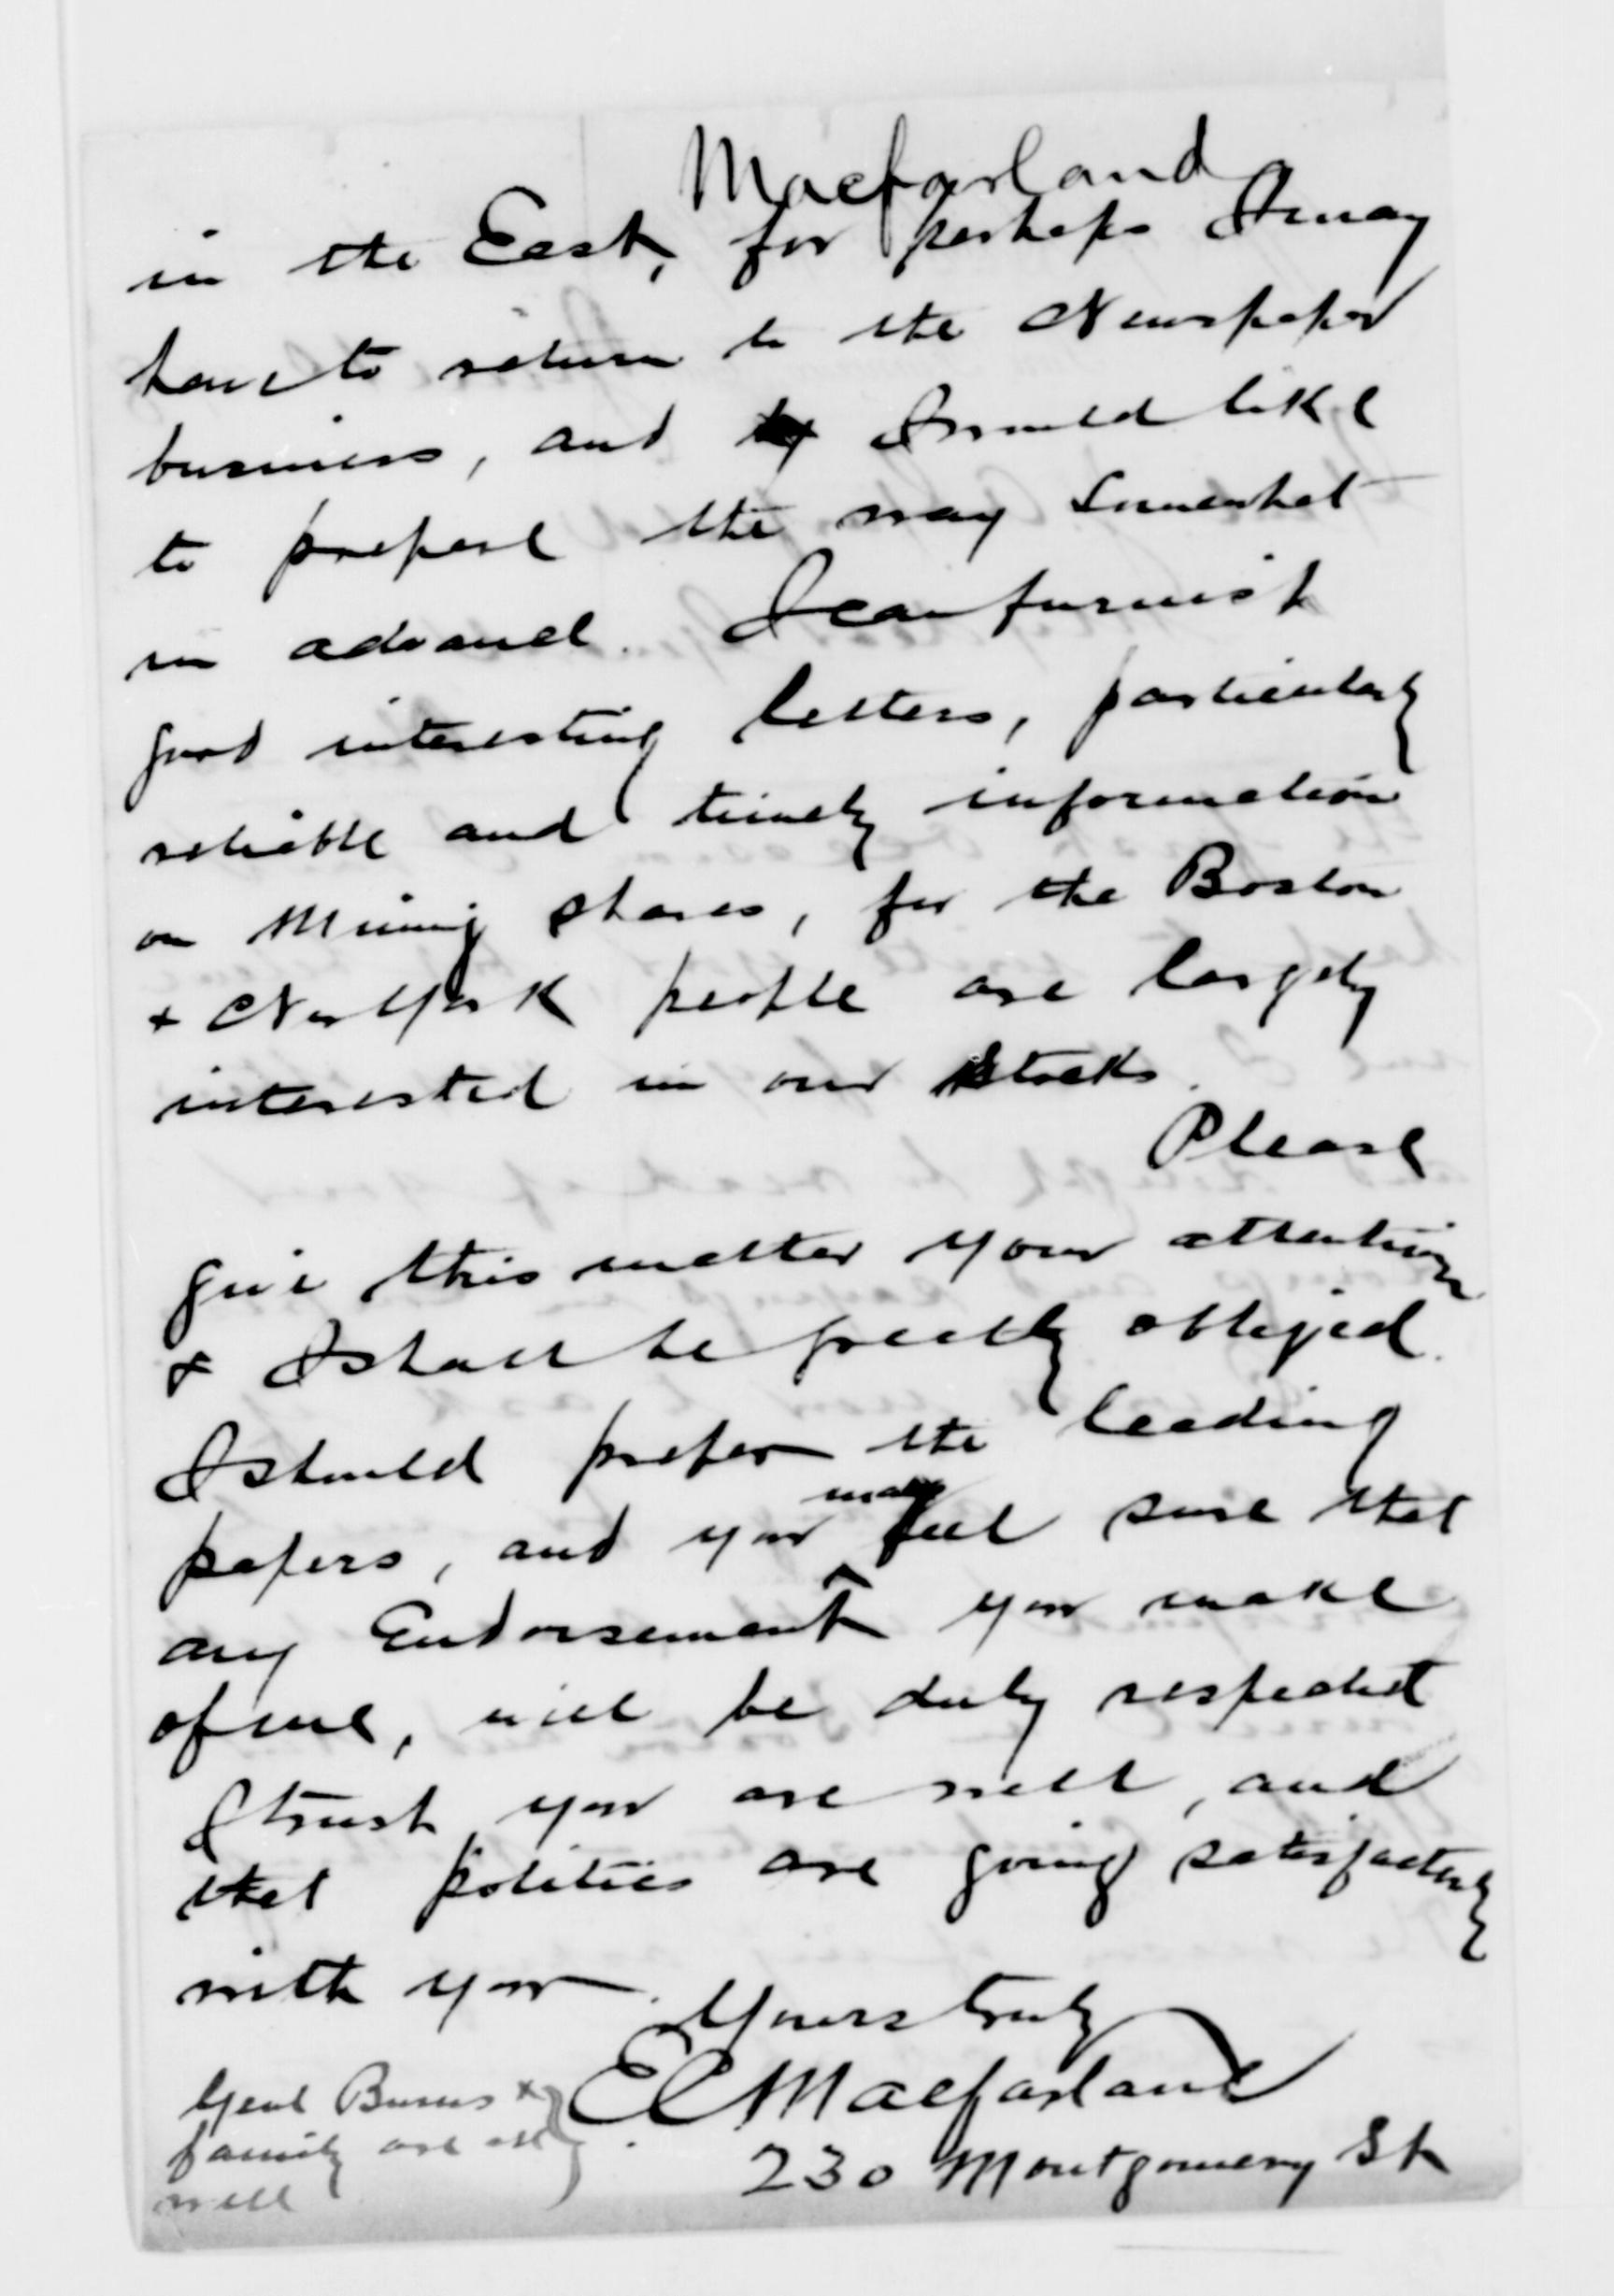 Macfarland
in the East, for perhaps I may
have to return to the Newspaper
business, and I would like
to prepare the way somewhat
in advance. I can furnish
good interesting letters, particularly
reliable and timely information
on Mining shares, for the Boston
+ New York people are largely
interested in our Stocks.
Please
give this matter your attention
+ I shall be greatly obliged.
I should prefer the leading
papers, and you may feel sure that
any Endorsement you make
of me, will be duly respected
I trust you are well, and
that politics are going satisfactorily
with you.
Yours truly
E C Macfarland
230 Montgomery St
Genl Burns +
family are all
well